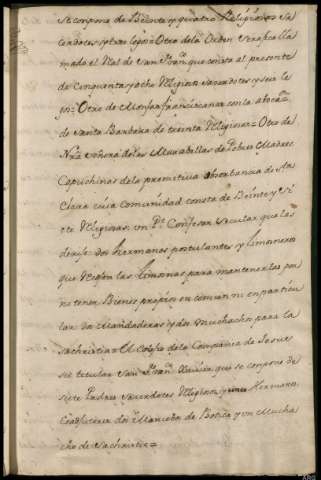 se compone de Beinte y quatro Religiosos Sa
cerdotes y tres legos= Otro dela Orden Serafica lla
mado el Rl. de San Franco. que consta al presente
de Cinquenta y ocho Religiosos sacerdotes y seis le
gos= Otro de Monjas franciscanas con la abocaon.
de santa Barbara de treinta Religiosas= Otro de
Nra. señora delas Marabillas de Pobres Madres
Capuchinas dela premitiva obserbancia de sta
Clara cuia comunidad consta de Beinte y Si
ete Religiosas un Pe. Confesor secular que las
dirije dos hermanos postulantes y limosnero
que recojen las limosnas para mantenerlas por
no tener Bienes propios en comun ni en particu
lar dos Mandaderas y dos muchachos para la
sachristia= El Colejio dela Compañia de Jesus
su titular San Franco. Xavier que se compone de
siete Padres sacerdotes Religiosos y Hermanos
Coadjutores dos Mancebos de Botica y un Mucha
cho de sachristia=
ARG